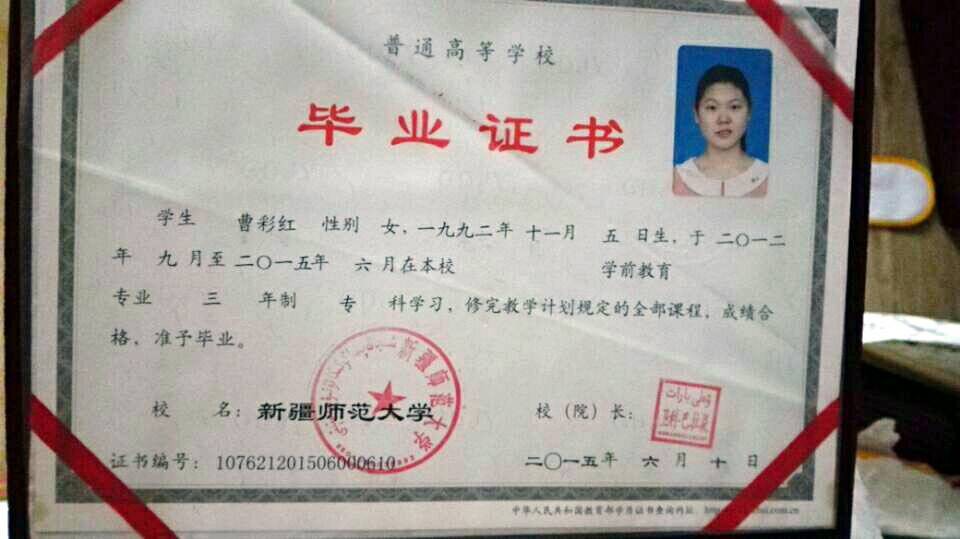 普通高等学校
毕业证书
学生 曹彩红 性别 女，一九九二年 十一月 五 日生，于 二〇一二
年 九 月至 二〇一五年 六 月在本校 学前教育
专业 三 年制 专 科学习，修完教学计划规定的全部课程，成绩合
格，准予毕业。
校 名： 新疆师范大学 校（院）长：
新疆师范大学
证书编号： 107621201506000610 二〇一五年 六 月 十 日
中华人民共和国教育部学历证书查询网址：